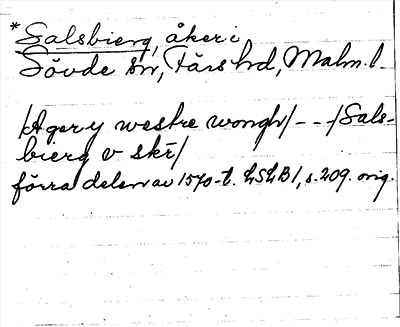 *Salsbierg, åker i
Sövde sn, Färs hd, Malm. l.
/Ager y westre wongh/ - - -/Sals-
bierg v skr̄/
förra delen av 1570-t. LSLB 1, s. 209. orig.